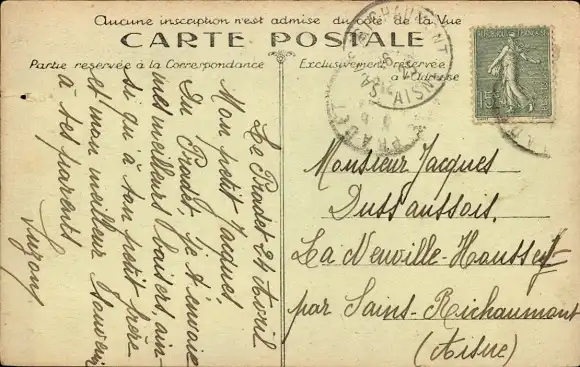 Aucune inscription n'est admise du côté de la Vue
CARTE POSTALE
Partie réservée à la Correspondance
Exclusivement réservée
à l'Adresse
Le Pradet 24 Avril
Mon petit Jacques,
Du Pradet, je t'envoie
mes meilleurs baisers, ain-
si qu'à ton petit frère
et mon meilleur souvenir
à tes parents
Suzon
Monsieur Jacques
Dussaussois.
La Neuville-Housset
par Sains-Richaumont
(Aisne)
15